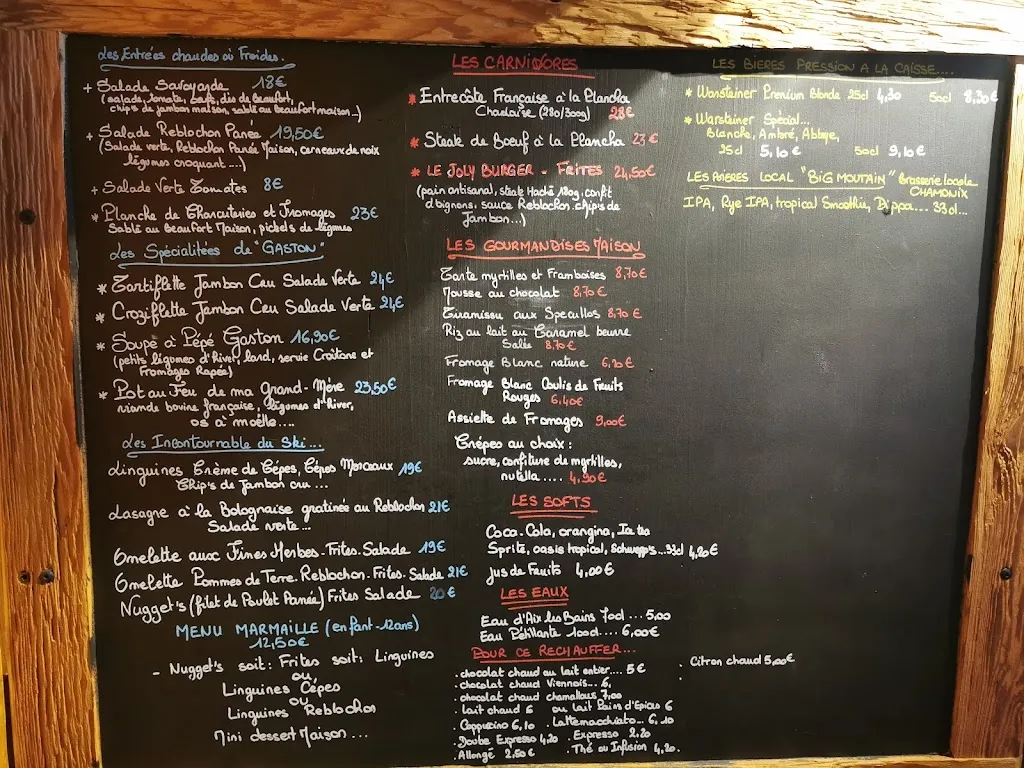 Les Entrées chaudes ou Froides.
+ Salade Savoyarde 18€
(salade, tomate, oeufs, dés de beaufort,
chips de jambon maison, sablé au beaufort maison...)
+ Salade Reblochon Panée 19,50€
(Salade verte, Reblochon Panée Maison, cerneaux de noix
légumes croquant...)
+ Salade Verte Tomates 8€
* Planche de Charcuteries et Fromages 23€
Sablé au Beaufort Maison, pickel's de légumes
Les Spécialitées de "GASTON"
* Tartiflette Jambon Cru Salade Verte 24€
* Croziflette Jambon Cru Salade Verte 24€
* Soupe à Pépé Gaston 16,90€
(petits légumes d'Hiver, lard, servie Croûtons et
Fromages Rapés)
* Pot au Feu de ma Grand-Mère 23,50€
viande bovine française, légumes d'hiver,
os à moëlle....
Les Incontournable du Ski...
Linguines Crème de Cépes, Cépes Morceaux 19€
Chip's de Jambon cru...
Lasagne à la Bolognaise gratinée au Reblochon 21€
Salade verte...
Omelette aux Fines Herbes. Frites. Salade 19€
Omelette Pommes de Terre. Reblochon. Frites. Salade 21€
Nugget's (filet de Poulet Panée) Frites Salade 20€
MENU MARMAILLE (enfant -12ans)
12,50€
- Nugget's soit: Frites soit: Linguines
ou,
Linguines Cépes
ou
Linguines Reblochon
Mini dessert Maison...
LES CARNIVORES
* Entrecôte Française à la Plancha
(280/300g) 28€
* Steak de Boeuf à la Plancha 23€
* LE JOLY BURGER - FRITES 24,50€
(pain artisanal, steak Haché 180g, confit
d'oignons, sauce Reblochon. chip's de
Jambon...)
LES GOURMANDISES MAISON
Tarte myrtilles et Framboises 8,70€
Mousse au chocolat 8,70€
Tiramissu aux Speculos 8,70€
Riz au lait au Caramel beurre
Salés 8,70€
Fromage Blanc nature 6,20€
Fromage Blanc Coulis de Fruits
Rouges 6,40€
Assiette de Fromages 9,00€
Crêpes au choix:
sucre, confiture de myrtilles,
nutella.... 4,90€
LES SOFTS
Coca. Cola, orangina, Ice tea
Sprite, oasis tropical, Schwepp's...33cl 4,20€
Jus de Fruits 4,00€
LES EAUX
Eau d'Aix les Bains 70cl... 5,00
Eau Pétillante 100cl.... 6,00€
POUR CE RECHAUFFER...
. chocolat chaud au lait entier.... 5€
. chocolat chaud Viennois... 6,
. chocolat chaud chamallows 7,00
. Lait chaud 6 ou lait Pains d'Epices 6
. Cappucino 6,10 . Latte macchiato... 6,10
. Double Expresso 4,20 . Expresso 2,20
. Allongé 2,50€ . Thé ou Infusion 4,20.
. Citron chaud 5,00€
LES BIERES PRESSION A LA CAISSE....
* Warsteiner Premium Blonde 25cl 4,30 50cl 8,30€
* Warsteiner Spécial...
Blanche, Ambré, Abbaye,
25cl 5,10€ 50cl 9,10€
LES BIERES LOCAL "BIG MOUTAIN" Brasserie locale
CHAMONIX
IPA, Rye IPA, tropical Smoothie, Dippa.... 33cl...